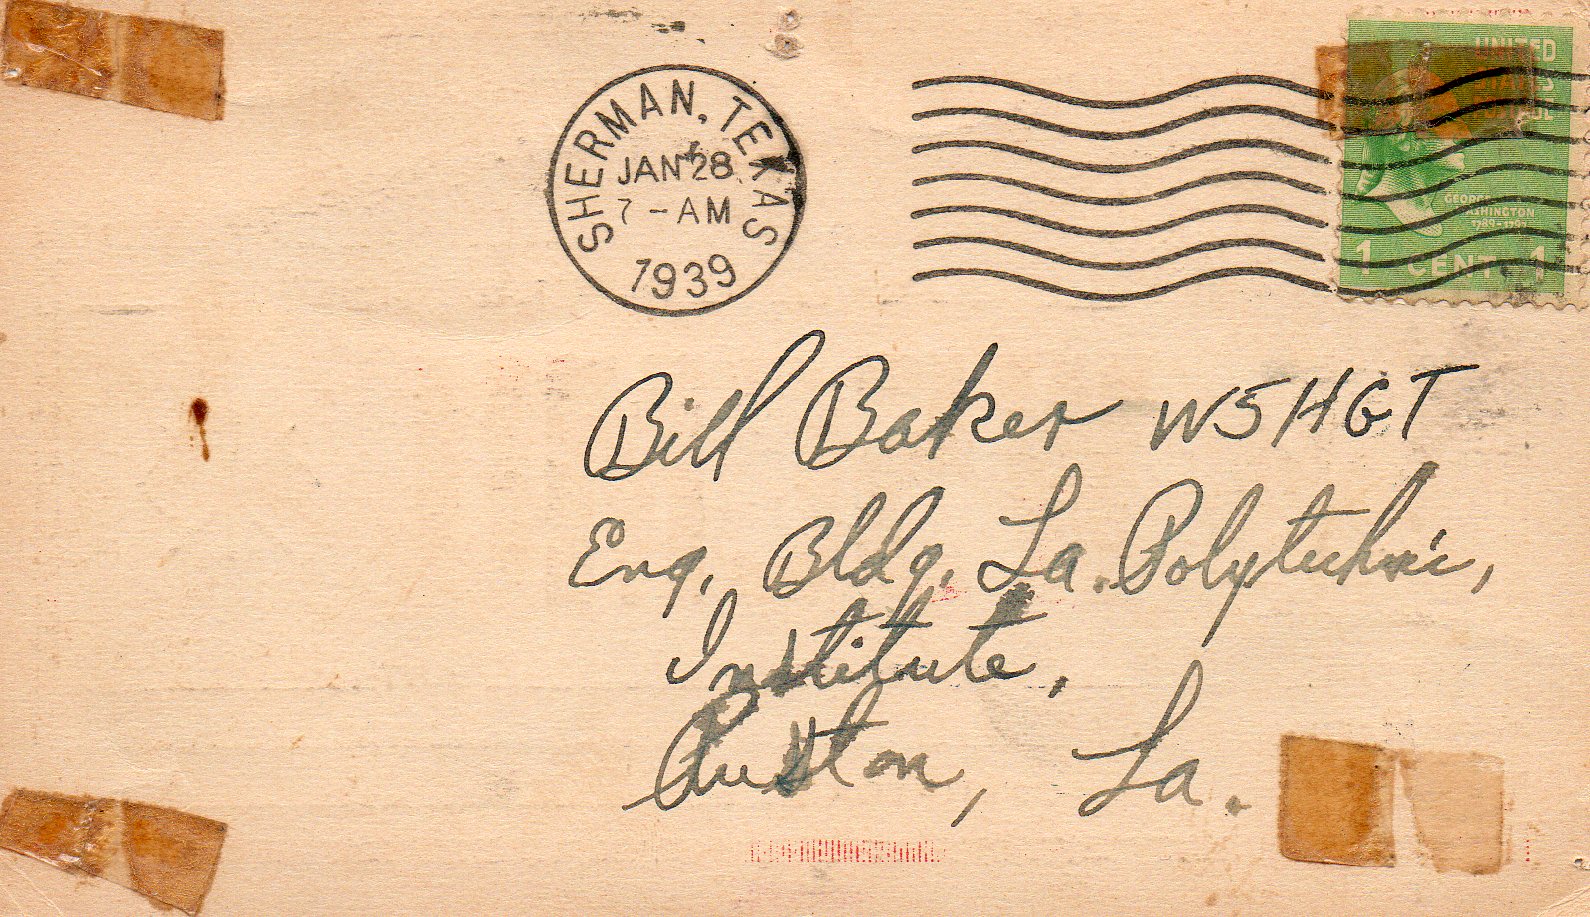 SHERMAN, TEXAS
JAN 28
7-AM
1939
UNITED
STATES
POSTAGE
GEORGE
WASHINGTON
1789-1797
1 CENT 1
Bill Baker W5HGT
Eng. Bldg. La. Polytechnic,
Institute,
Ruston, La.